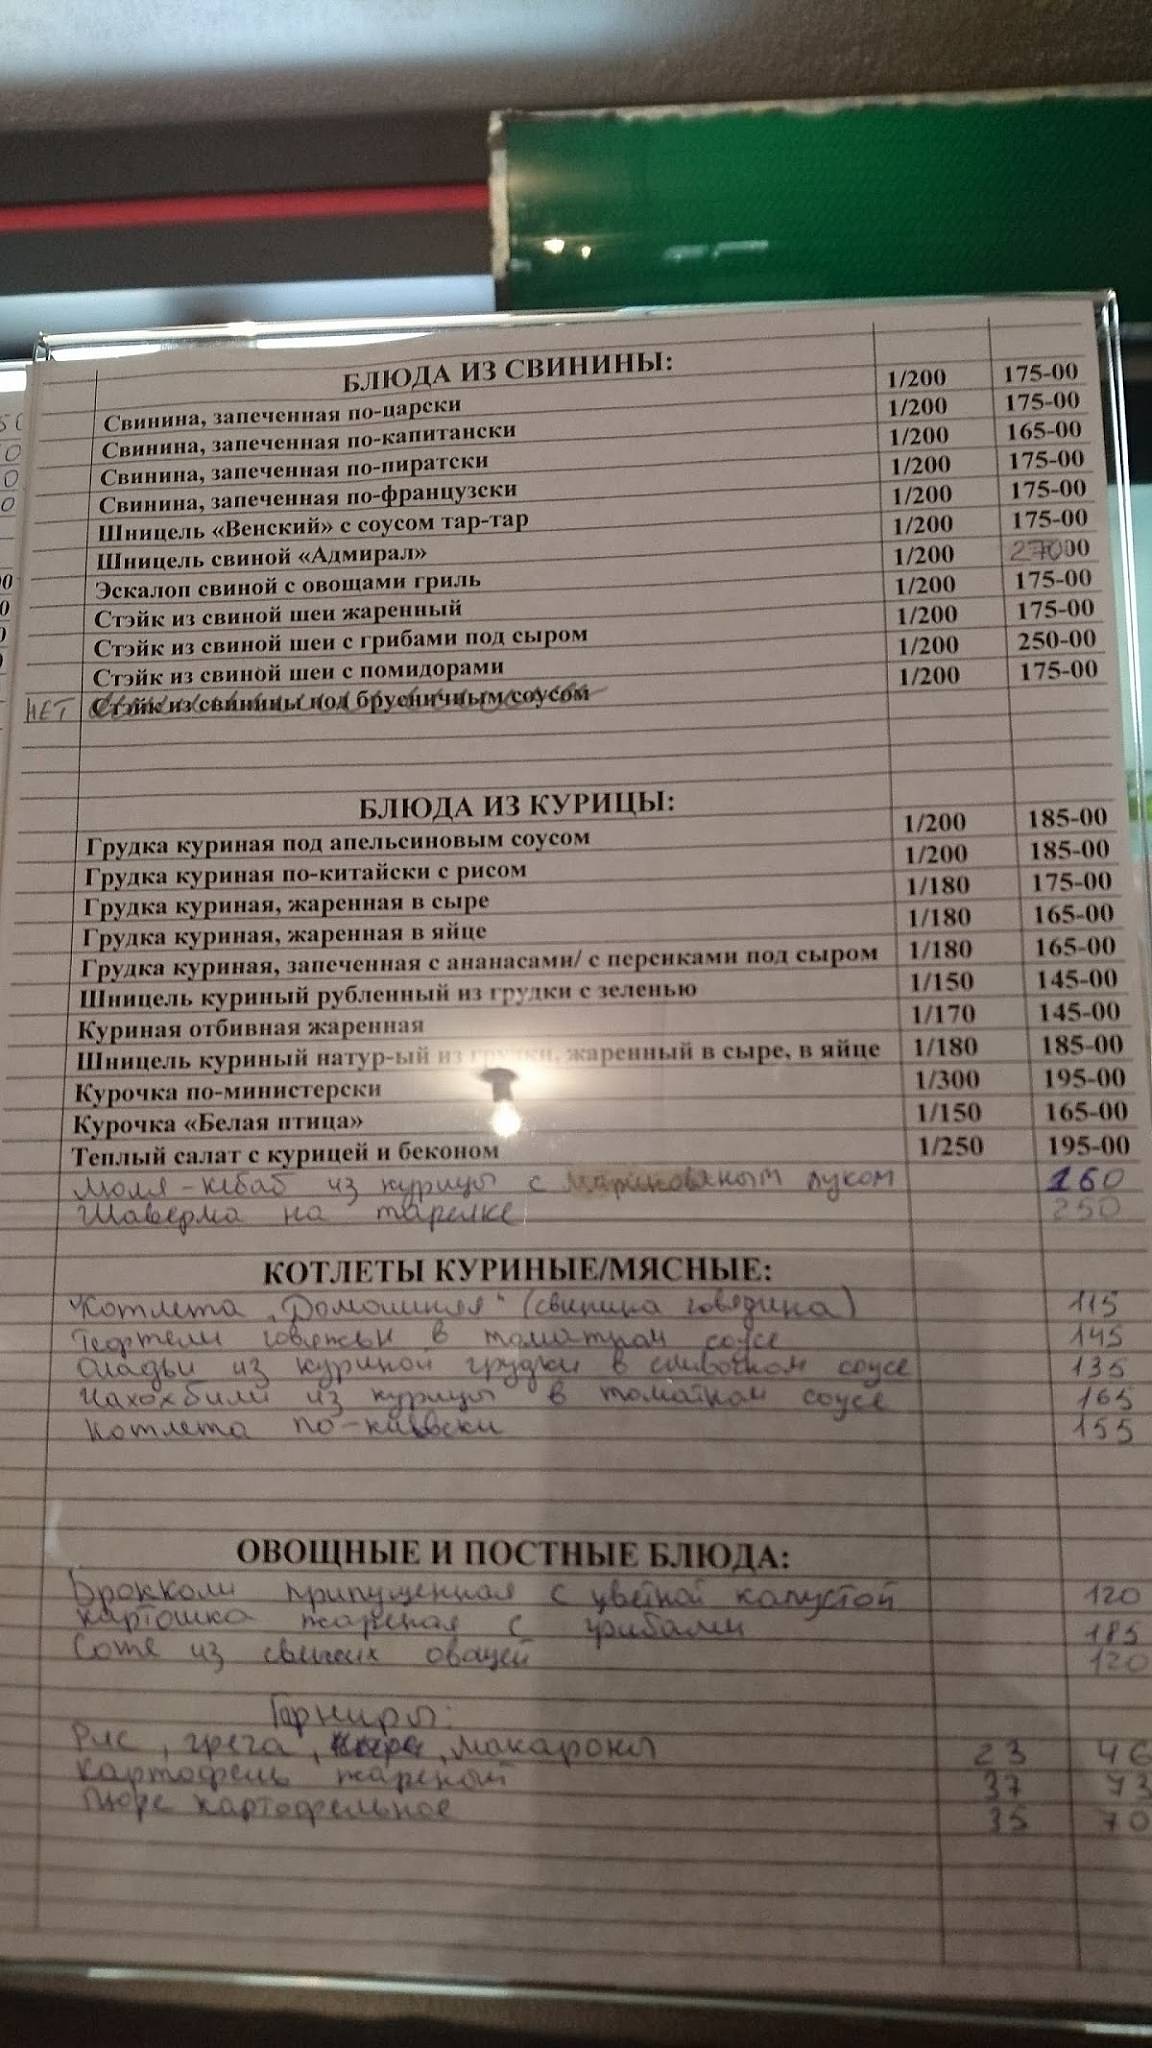 БЛЮДА ИЗ СВИНИНЫ:
Свинина, запеченная по-царски 1/200 175-00
Свинина, запеченная по-капитански 1/200 175-00
Свинина, запеченная по-пиратски 1/200 165-00
Свинина, запеченная по-французски 1/200 175-00
Шницель «Венский» с соусом тар-тар 1/200 175-00
Шницель свиной «Адмирал» 1/200 175-00
Эскалоп свиной с овощами гриль 1/200 27000
Стэйк из свиной шеи жаренный 1/200 175-00
Стэйк из свиной шеи с грибами под сыром 1/200 175-00
Стэйк из свиной шеи с помидорами 1/200 250-00
НЕТ Стэйк из свинины под брусничным соусом 1/200 175-00
БЛЮДА ИЗ КУРИЦЫ:
Грудка куриная под апельсиновым соусом 1/200 185-00
Грудка куриная по-китайски с рисом 1/200 185-00
Грудка куриная, жаренная в сыре 1/180 175-00
Грудка куриная, жаренная в яйце 1/180 165-00
Грудка куриная, запеченная с ананасами/ с персиками под сыром 1/180 165-00
Шницель куриный рубленный из грудки с зеленью 1/150 145-00
Куриная отбивная жаренная 1/170 145-00
Шницель куриный натур-ый из грудки, жаренный в сыре, в яйце 1/180 185-00
Курочка по-министерски 1/300 195-00
Курочка «Белая птица» 1/150 165-00
Теплый салат с курицей и беконом 1/250 195-00
Люля-кебаб из курицы с маринованым луком 160
Шаверма на тарелке 250
КОТЛЕТЫ КУРИНЫЕ/МЯСНЫЕ:
Котлета „Домашняя" (свинина говядина) 115
Тефтели говяжьи в томатном соусе 145
Оладьи из куриной грудки в сливочном соусе 135
Чахохбили из курицы в томатном соусе 165
Котлета по-киевски 155
ОВОЩНЫЕ И ПОСТНЫЕ БЛЮДА:
Брокколи припущенная с цветной капустой 120
Картошка жареная с грибами 185
Соте из свежих овощей 120
Гарниры:
Рис, греча, макароны 23 46
Картофель жареный 37 73
Пюре картофельное 35 70